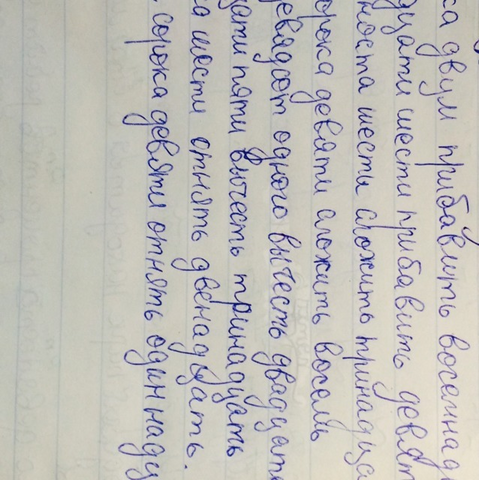 ка двум прибавить восемнад
дцати шести прибавить девят
носта шести сложить тринадца
орока девяти сложить восемь
девядсот одного вычесть двадцат
дцати пяти вычесть тринадцать
ка шести отнять двенадцать.
сорока девяти отнять одиннадц